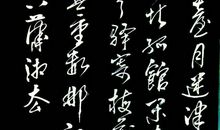 臺月迷津
堪孤館閉
驛寄梅花
無重數郴
下瀟湘去